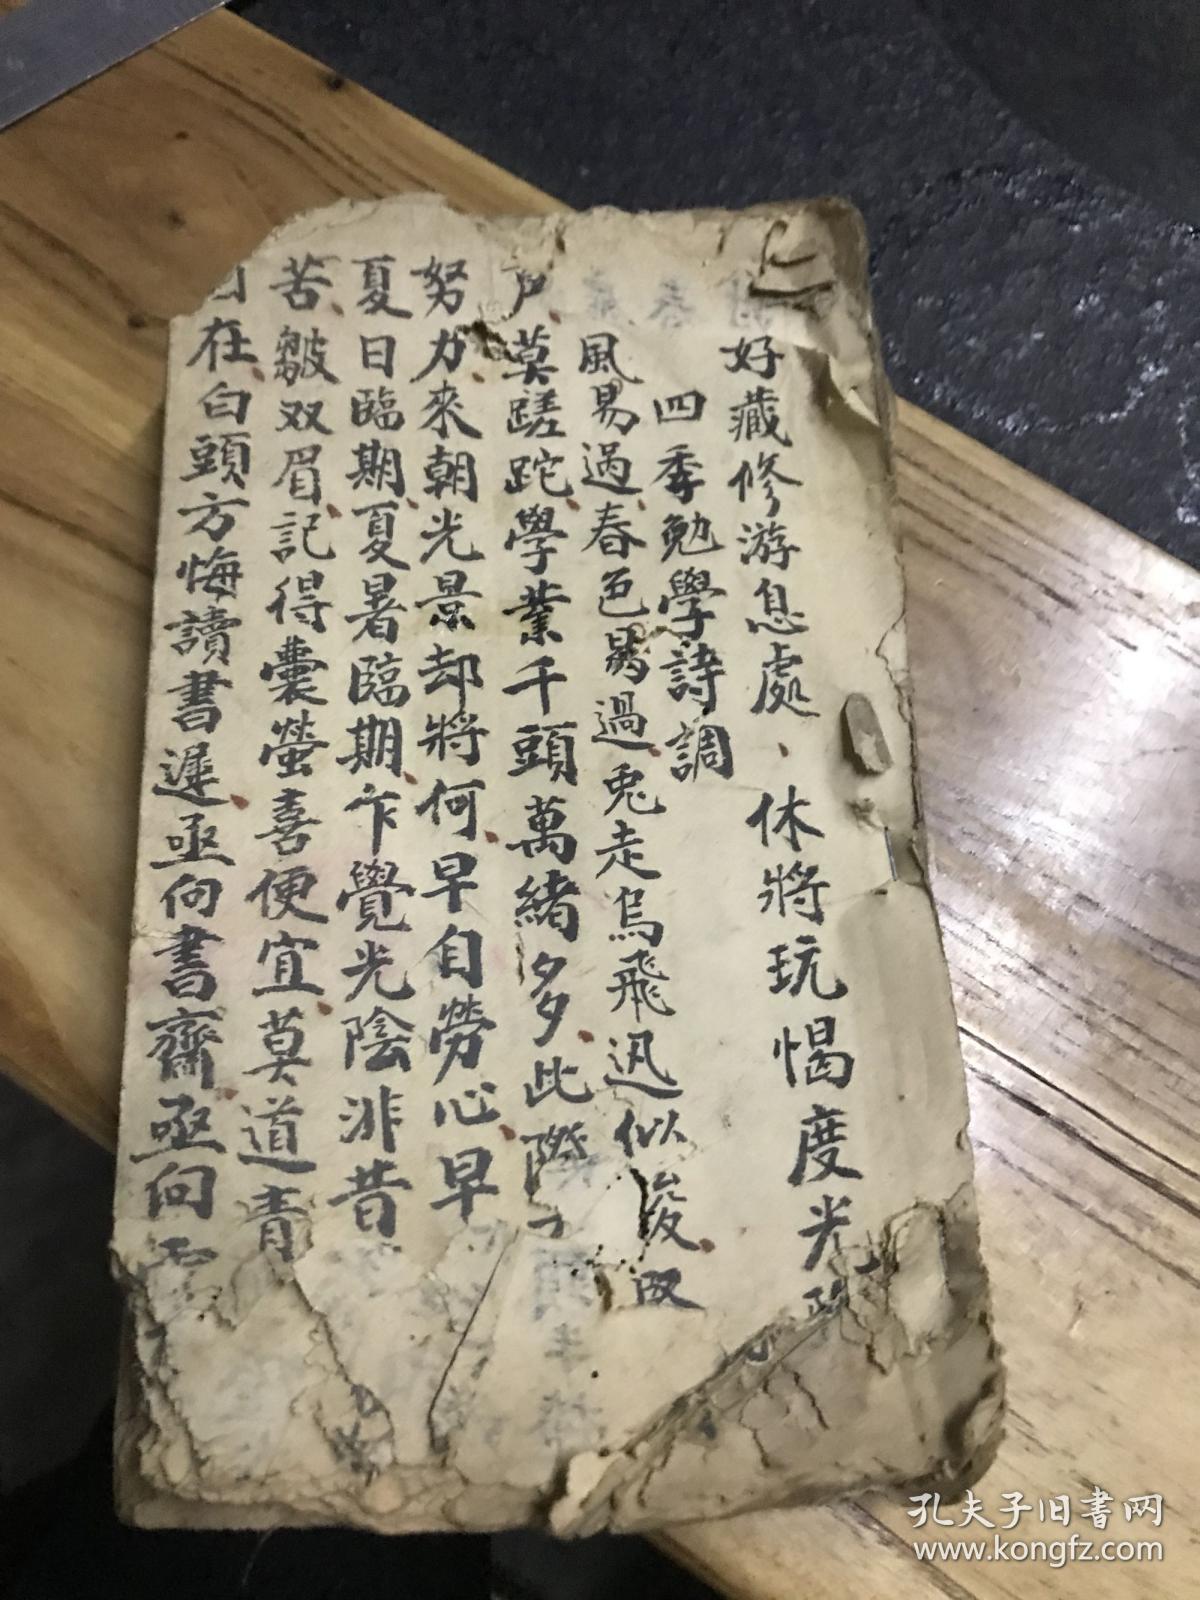 好藏修游息處、休將玩愒度光陰
四季勉學詩調
風易過春色易過兎走烏飛迅似浚
莫蹉跎學業千頭萬緒多此際
努力來朝光景却將何早自勞心早
夏日臨期夏暑臨期乍覺光陰非昔
苦皺双眉記得囊螢喜便宜莫道青
在白頭方悔讀書遲亟向書齋亟向
孔夫子旧书网
www.kongfz.com